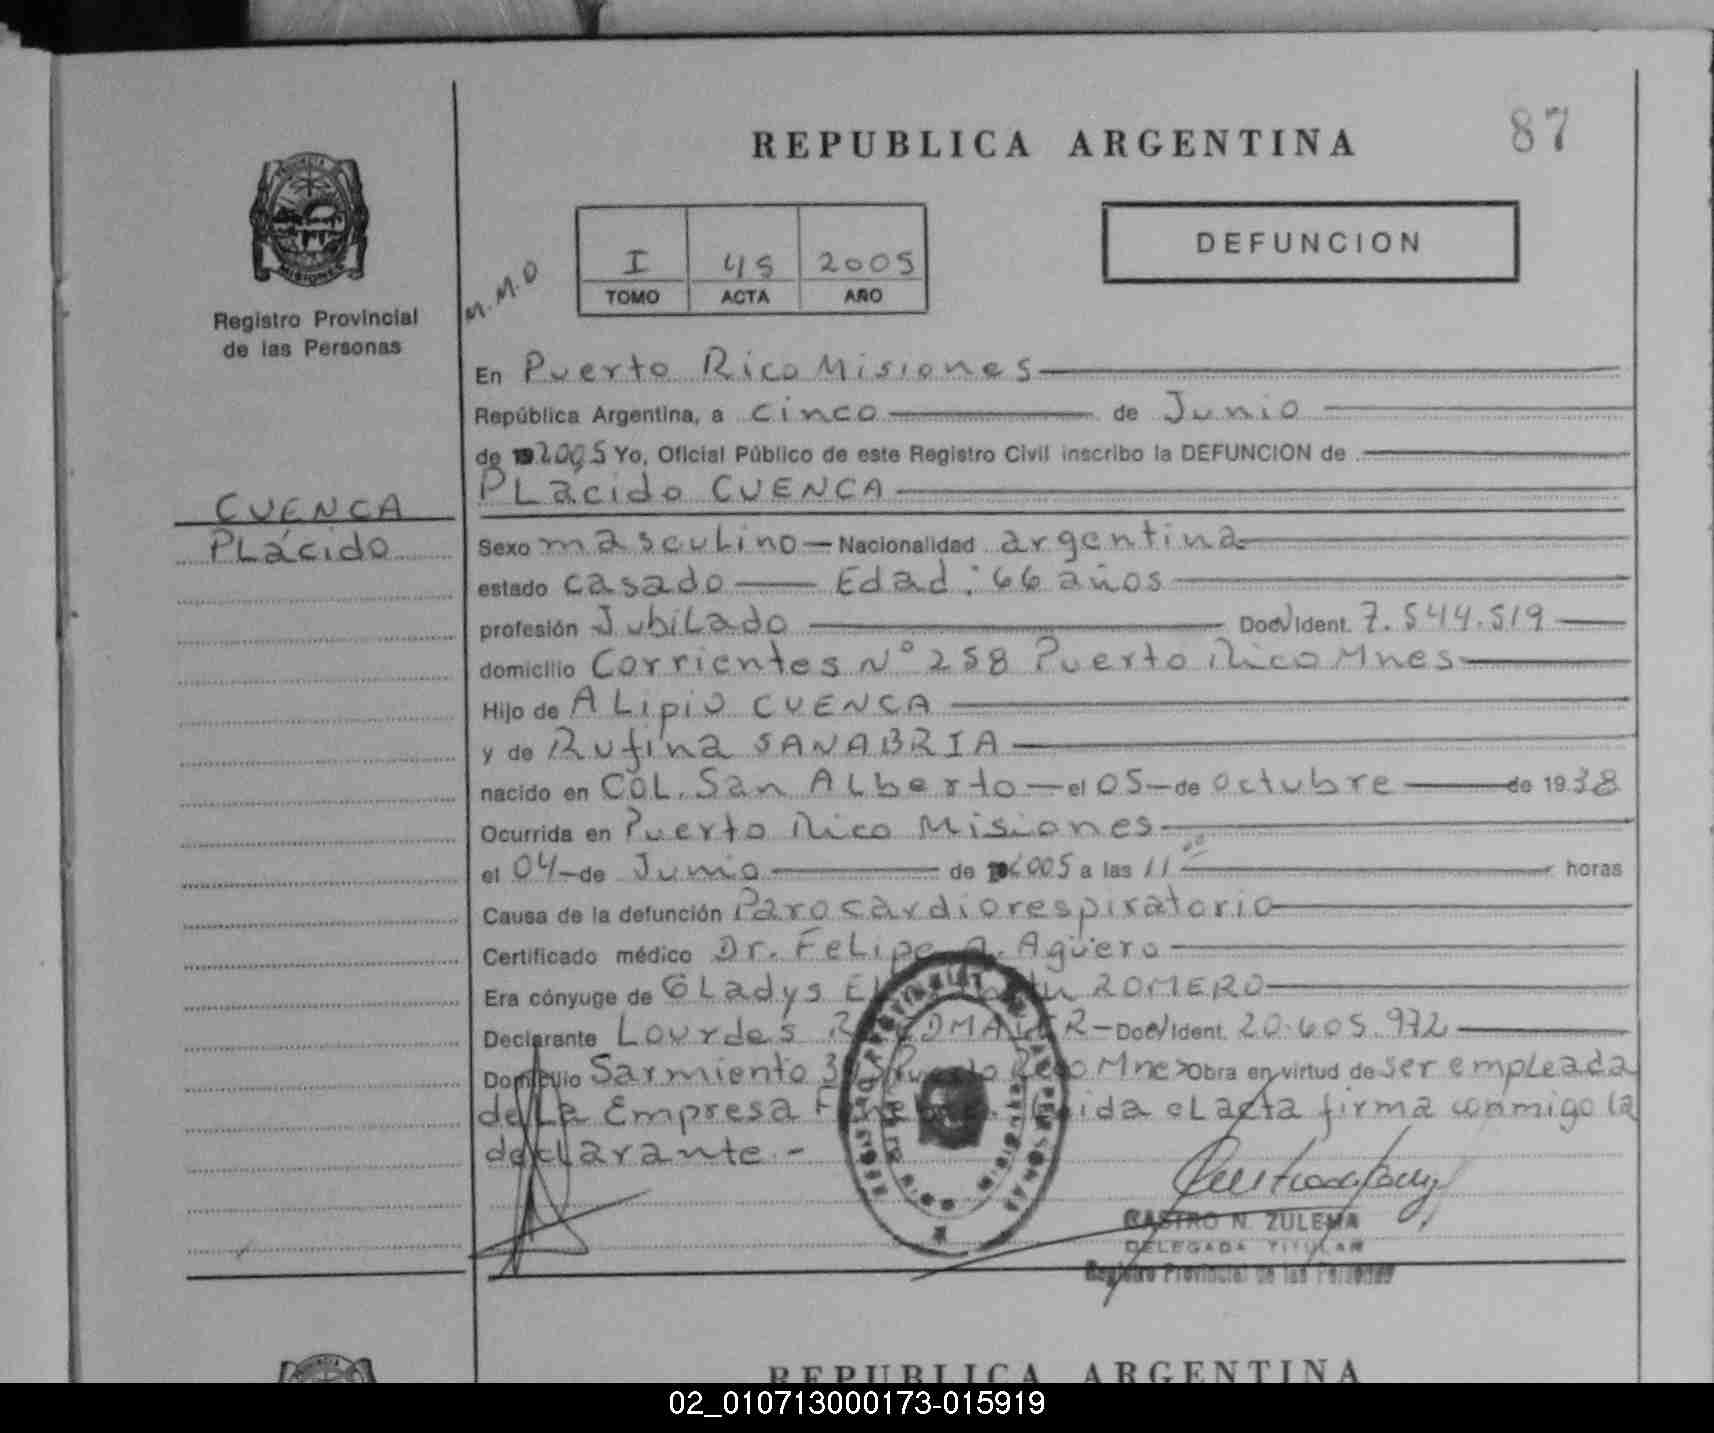 87
REPUBLICA ARGENTINA
DEFUNCION
I 45 2005
TOMO ACTA AÑO
M.M.O
Registro Provincial
de las Personas
En Puerto Rico Misiones
República Argentina, a cinco de Junio
de 2005 Yo, Oficial Público de este Registro Civil inscribo la DEFUNCION de
PLacido CUENCA
CUENCA
PLácido
Sexo masculino Nacionalidad argentina
estado casado Edad: 66 años
profesión Jubilado Doc. Ident. 7.544.519
domicilio Corrientes N° 258 Puerto Rico Mnes
Hijo de ALipio CUENCA
y de Rufina SANABRIA
nacido en COL. San ALberto el 05 de octubre de 1938
Ocurrida en Puerto Rico Misiones
el 04 de Junio de 2005 a las 11 00 horas
Causa de la defunción Paro cardiorespiratorio
Certificado médico Dr. FeLipe A. Agüero
Era cónyuge de GLadys ROMERO
Declarante Lourdes Doc. Ident. 20.605.972
Domicilio Sarmiento Puerto Rico Mnes Obra en virtud de ser empleada
de La Empresa eL acta firma conmigo la
declarante.-
CASTRO N. ZULEMA
DELEGADA TITULAR
Registro Provincial de las Personas
REPUBLICA ARGENTINA
02_010713000173-015919